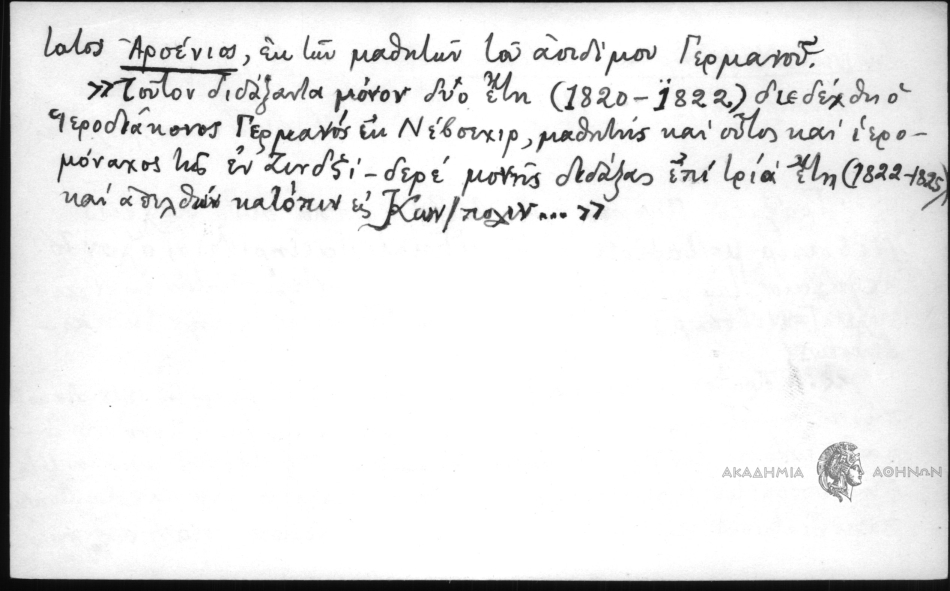 τατος Ἀρσένιος, ἐκ τῶν μαθητῶν τοῦ ἀοιδίμου Γερμανοῦ.
»Τοῦτον διδάξαντα μόνον δύο ἔτη (1820-1822) διεδέχθη ὁ
Ἱεροδιάκονος Γερμανός ἐκ Νέβσεχιρ, μαθητής καί οὗτος καί ἱερο-
μόναχος τῆς ἐν Ζινδξί-δερέ μονῆς διδάξας ἐπί τρία ἔτη (1822-1825)
καί ἀπελθών κατόπιν εἰς Κων/πολιν... »
ΑΚΑΔΗΜΙΑ ΑΘΗΝΩΝ